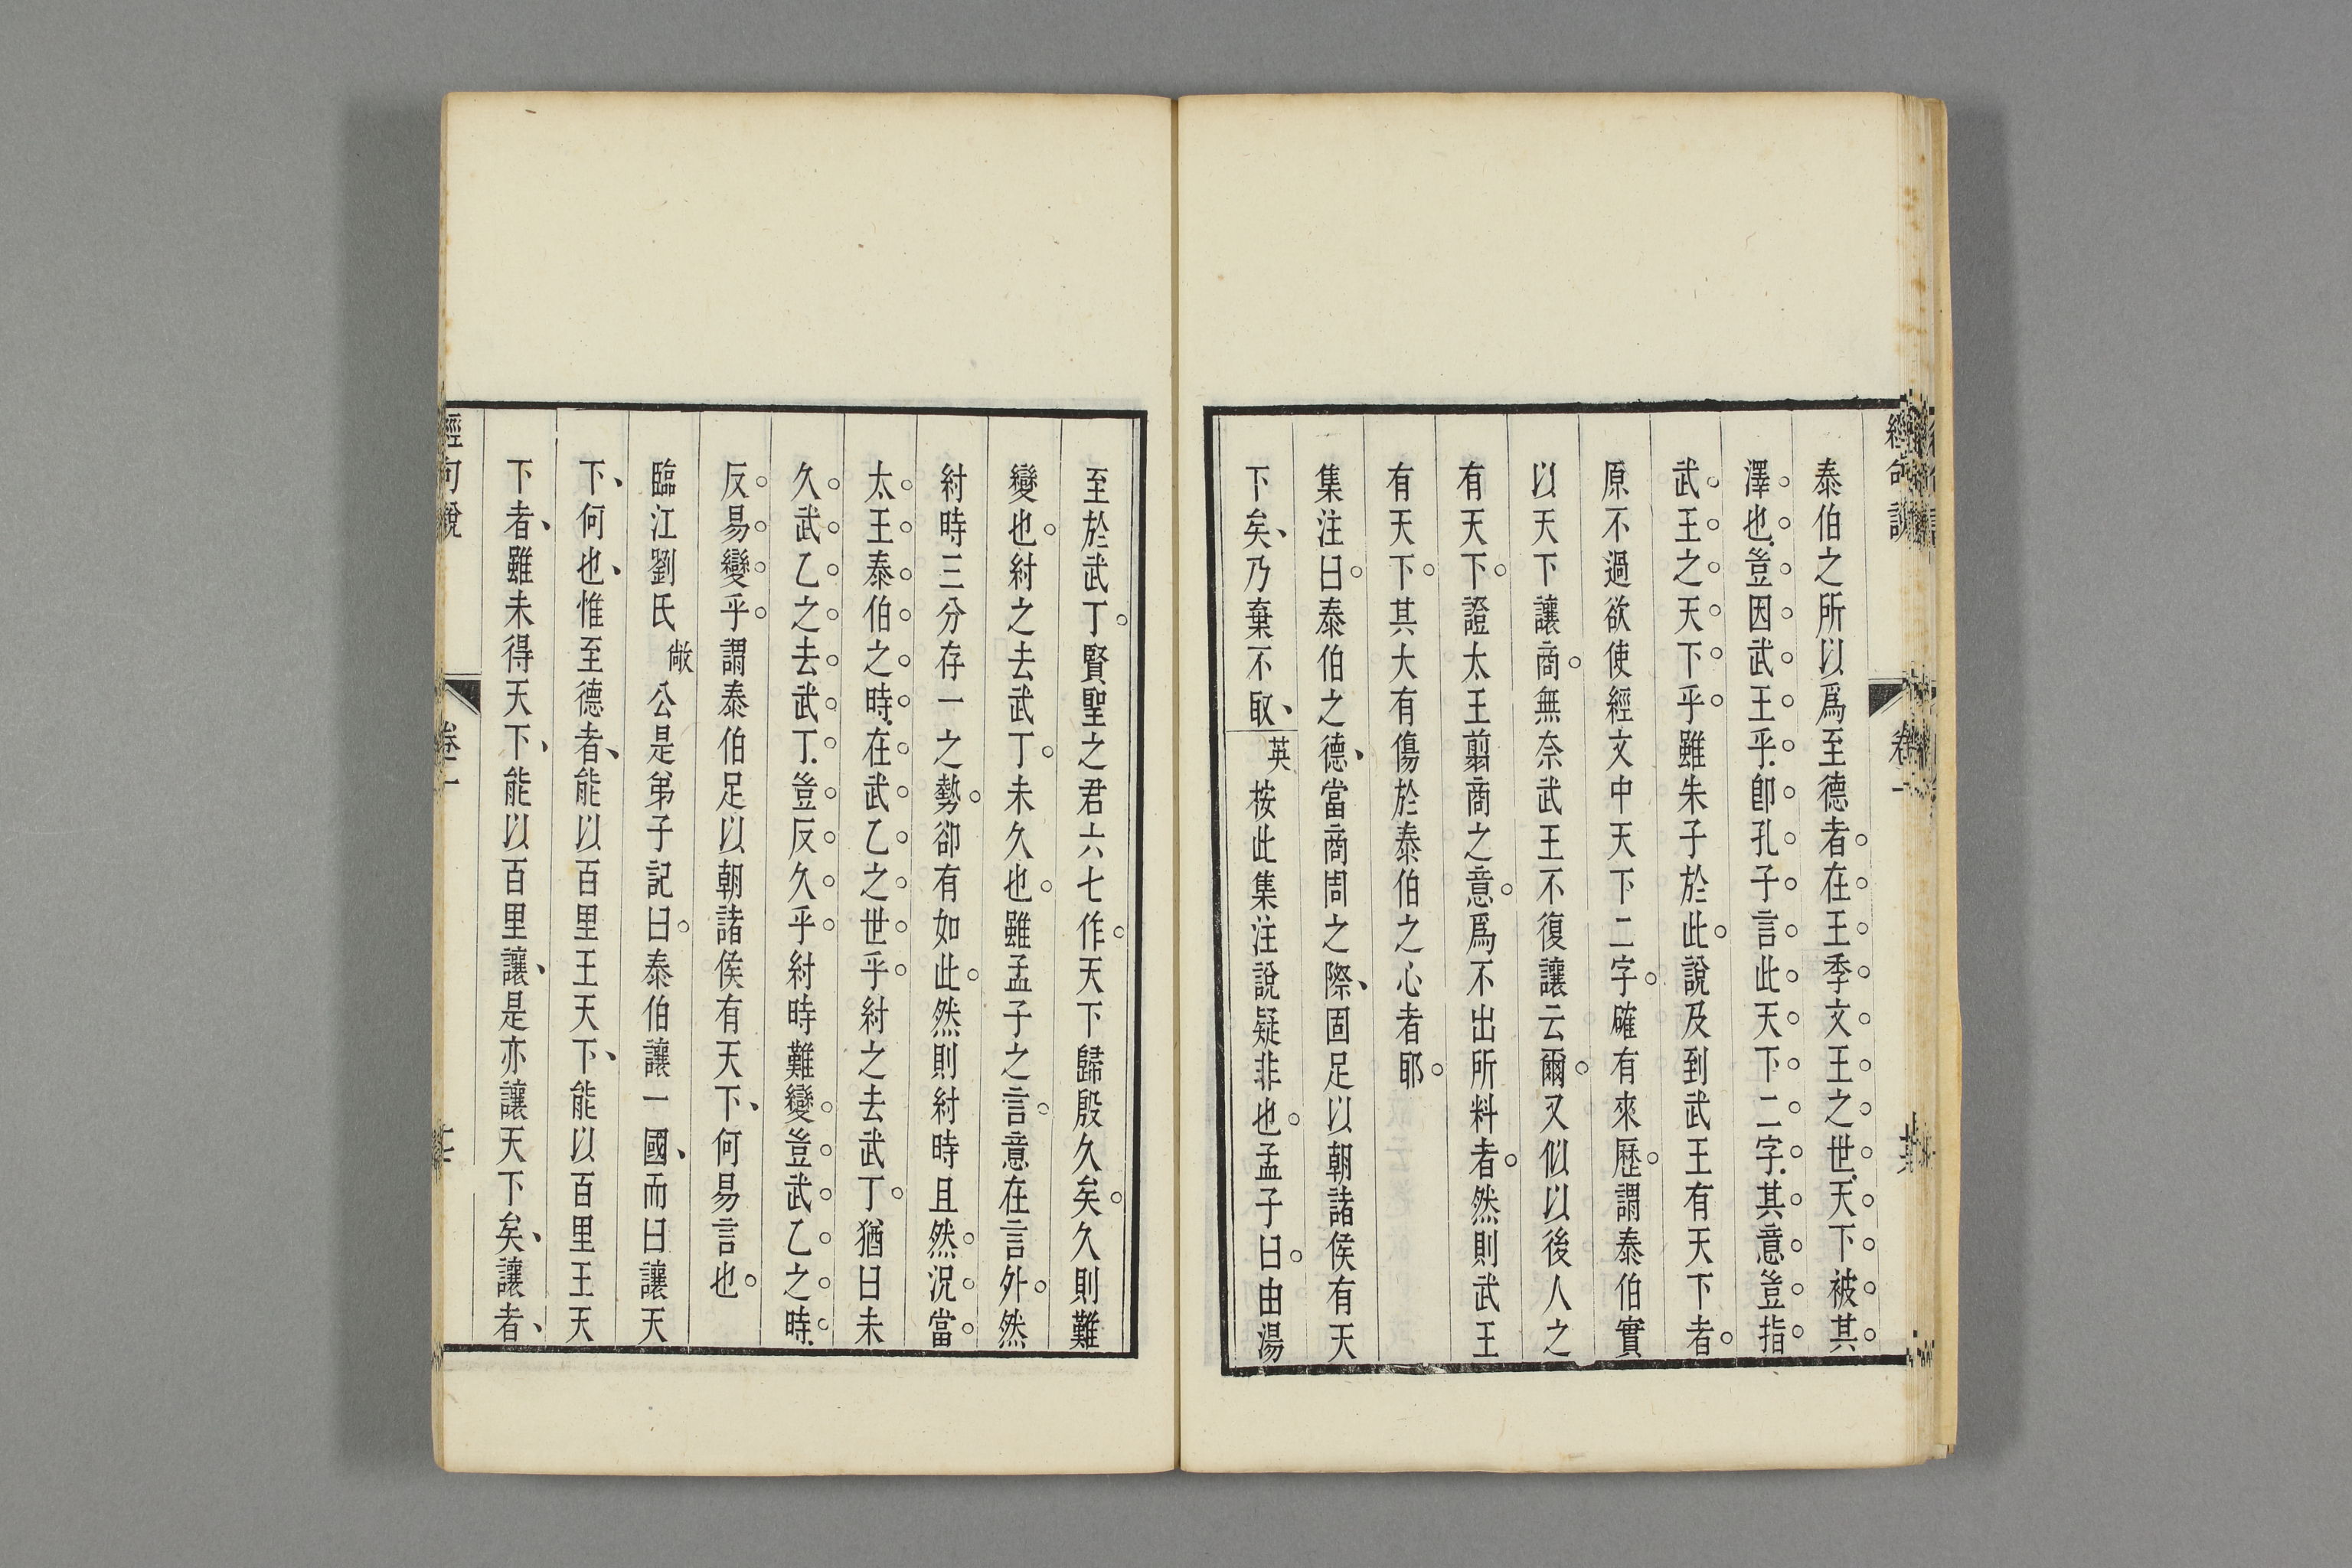 泰伯之所以爲至德者在王季文王之世天下被其
澤也豈因武王乎卽孔子言此天下二字其意豈指
武王之天下乎雖朱子於此說及到武王有天下者
原不過欲使經文中天下二字確有來歷謂泰伯實
以天下讓商無奈武王不復讓云爾又似以後人之
有天下證太王翦商之意爲不出所料者然則武王
有天下其大有傷於泰伯之心者耶
集注曰泰伯之德當商周之際固足以朝諸侯有天
下矣乃棄不取英按此集注說疑非也孟子曰由湯
至於武丁賢聖之君六七作天下歸殷久矣久則難
變也紂之去武丁未久也雖孟子之言意在言外然
紂時三分存一之勢卻有如此然則紂時且然況當
太王泰伯之時在武乙之世乎紂之去武丁猶曰未
久武乙之去武丁豈反久乎紂時難變豈武乙之時
反易變乎謂泰伯足以朝諸侯有天下何易言也
臨江劉氏敞公是弟子記曰泰伯讓一國而曰讓天
下何也惟至德者能以百里王天下能以百里王天
下者雖未得天下能以百里讓是亦讓天下矣讓者
經句說
卷一